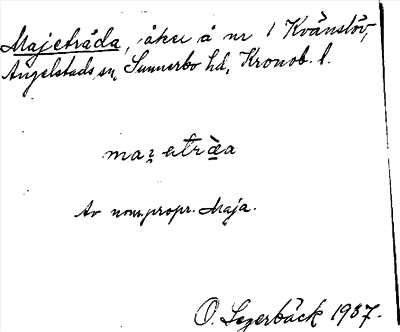 Majetråda, åker å nr 1 Kvänslöv,
Angelstads sn, Sunnerbo hd, Kronob. l.
Av nom. propr. Maja.
O. Segerbäck 1937.